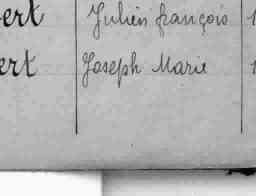 ert Julien françois 1
ert Joseph Marie 1